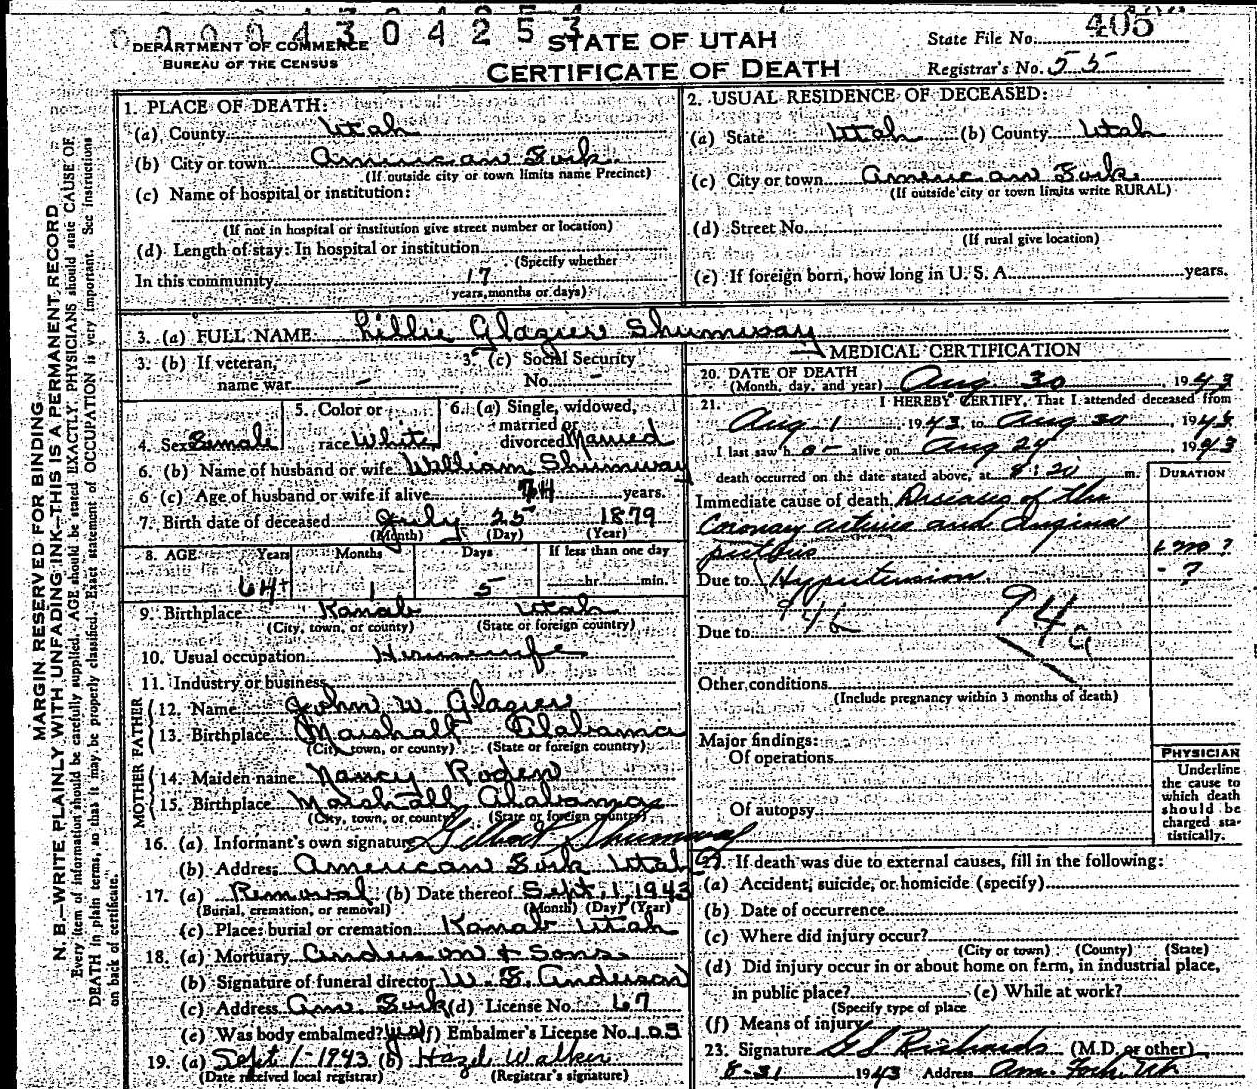 00004304253
DEPARTMENT OF COMMERCE
BUREAU OF THE CENSUS
STATE OF UTAH
CERTIFICATE OF DEATH
State File No. 405
Registrar's No. 55
MARGIN RESERVED FOR BINDING
N. B.—WRITE PLAINLY WITH UNFADING INK—THIS IS A PERMANENT RECORD
Every item of information should be carefully supplied. AGE should be stated EXACTLY. PHYSICIANS should state CAUSE OF
DEATH in plain terms, so that it may be properly classified. Exact statement of OCCUPATION is very important. See instructions
on back of certificate.
1. PLACE OF DEATH:
(a) County Utah
(b) City or town American Fork
(If outside city or town limits name Precinct)
(c) Name of hospital or institution:
(If not in hospital or institution give street number or location)
(d) Length of stay: In hospital or institution
(Specify whether
In this community 17
years, months or days)
2. USUAL RESIDENCE OF DECEASED:
(a) State Utah (b) County Utah
(c) City or town American Fork
(If outside city or town limits write RURAL)
(d) Street No.
(If rural give location)
(e) If foreign born, how long in U. S. A. years.
3. (a) FULL NAME: Lillie Glazier Shumway
3. (b) If veteran, name war —
3. (c) Social Security No. —
4. Sex Female
5. Color or race White
6. (a) Single, widowed, married or divorced Married
6. (b) Name of husband or wife William Shumway
6 (c) Age of husband or wife if alive 74 years.
7. Birth date of deceased July 25 1879
(Month) (Day) (Year)
8. AGE: Years Months Days If less than one day
64 1 5 hr. min.
9. Birthplace Kanab Utah
(City, town, or county) (State or foreign country)
10. Usual occupation Housewife
11. Industry or business
FATHER
12. Name John W. Glazier
13. Birthplace Marshall Alabama
(City, town, or county) (State or foreign country)
MOTHER
14. Maiden name Nancy Roden
15. Birthplace Marshall Alabama
(City, town, or county) (State or foreign country)
16. (a) Informant's own signature Shumway
(b) Address American Fork Utah
17. (a) Removal (b) Date thereof Sept. 1, 1943
(Burial, cremation, or removal) (Month) (Day) (Year)
(c) Place: burial or cremation Kanab Utah
18. (a) Mortuary Anderson & Sons
(b) Signature of funeral director W. E. Anderson
(c) Address Am. Fork (d) License No. 67
(e) Was body embalmed? yes (f) Embalmer's License No. 103
19. (a) Sept 1-1943 (b) Hazel Walker
(Date received local registrar) (Registrar's signature)
MEDICAL CERTIFICATION
20. DATE OF DEATH
(Month, day, and year) Aug 30, 1943
21. I HEREBY CERTIFY, That I attended deceased from
Aug 1 1943 to Aug 30, 1943
I last saw h alive on Aug 24, 1943
death occurred on the date stated above, at 8:20 m.
DURATION
Immediate cause of death Diseases of the
Coronary arteries and Angina
pectoris 1 mo ?
Due to Hypertension - ?
94b 94a
Due to
Other conditions
(Include pregnancy within 3 months of death)
Major findings:
Of operations
Of autopsy
PHYSICIAN
Underline
the cause to
which death
should be
charged sta-
tistically.
22. If death was due to external causes, fill in the following:
(a) Accident, suicide, or homicide (specify)
(b) Date of occurrence
(c) Where did injury occur?
(City or town) (County) (State)
(d) Did injury occur in or about home on farm, in industrial place,
in public place? (e) While at work?
(Specify type of place
(f) Means of injury
23. Signature G S Richards (M.D. or other)
8-31 1943 Address Am. Fork, Ut.